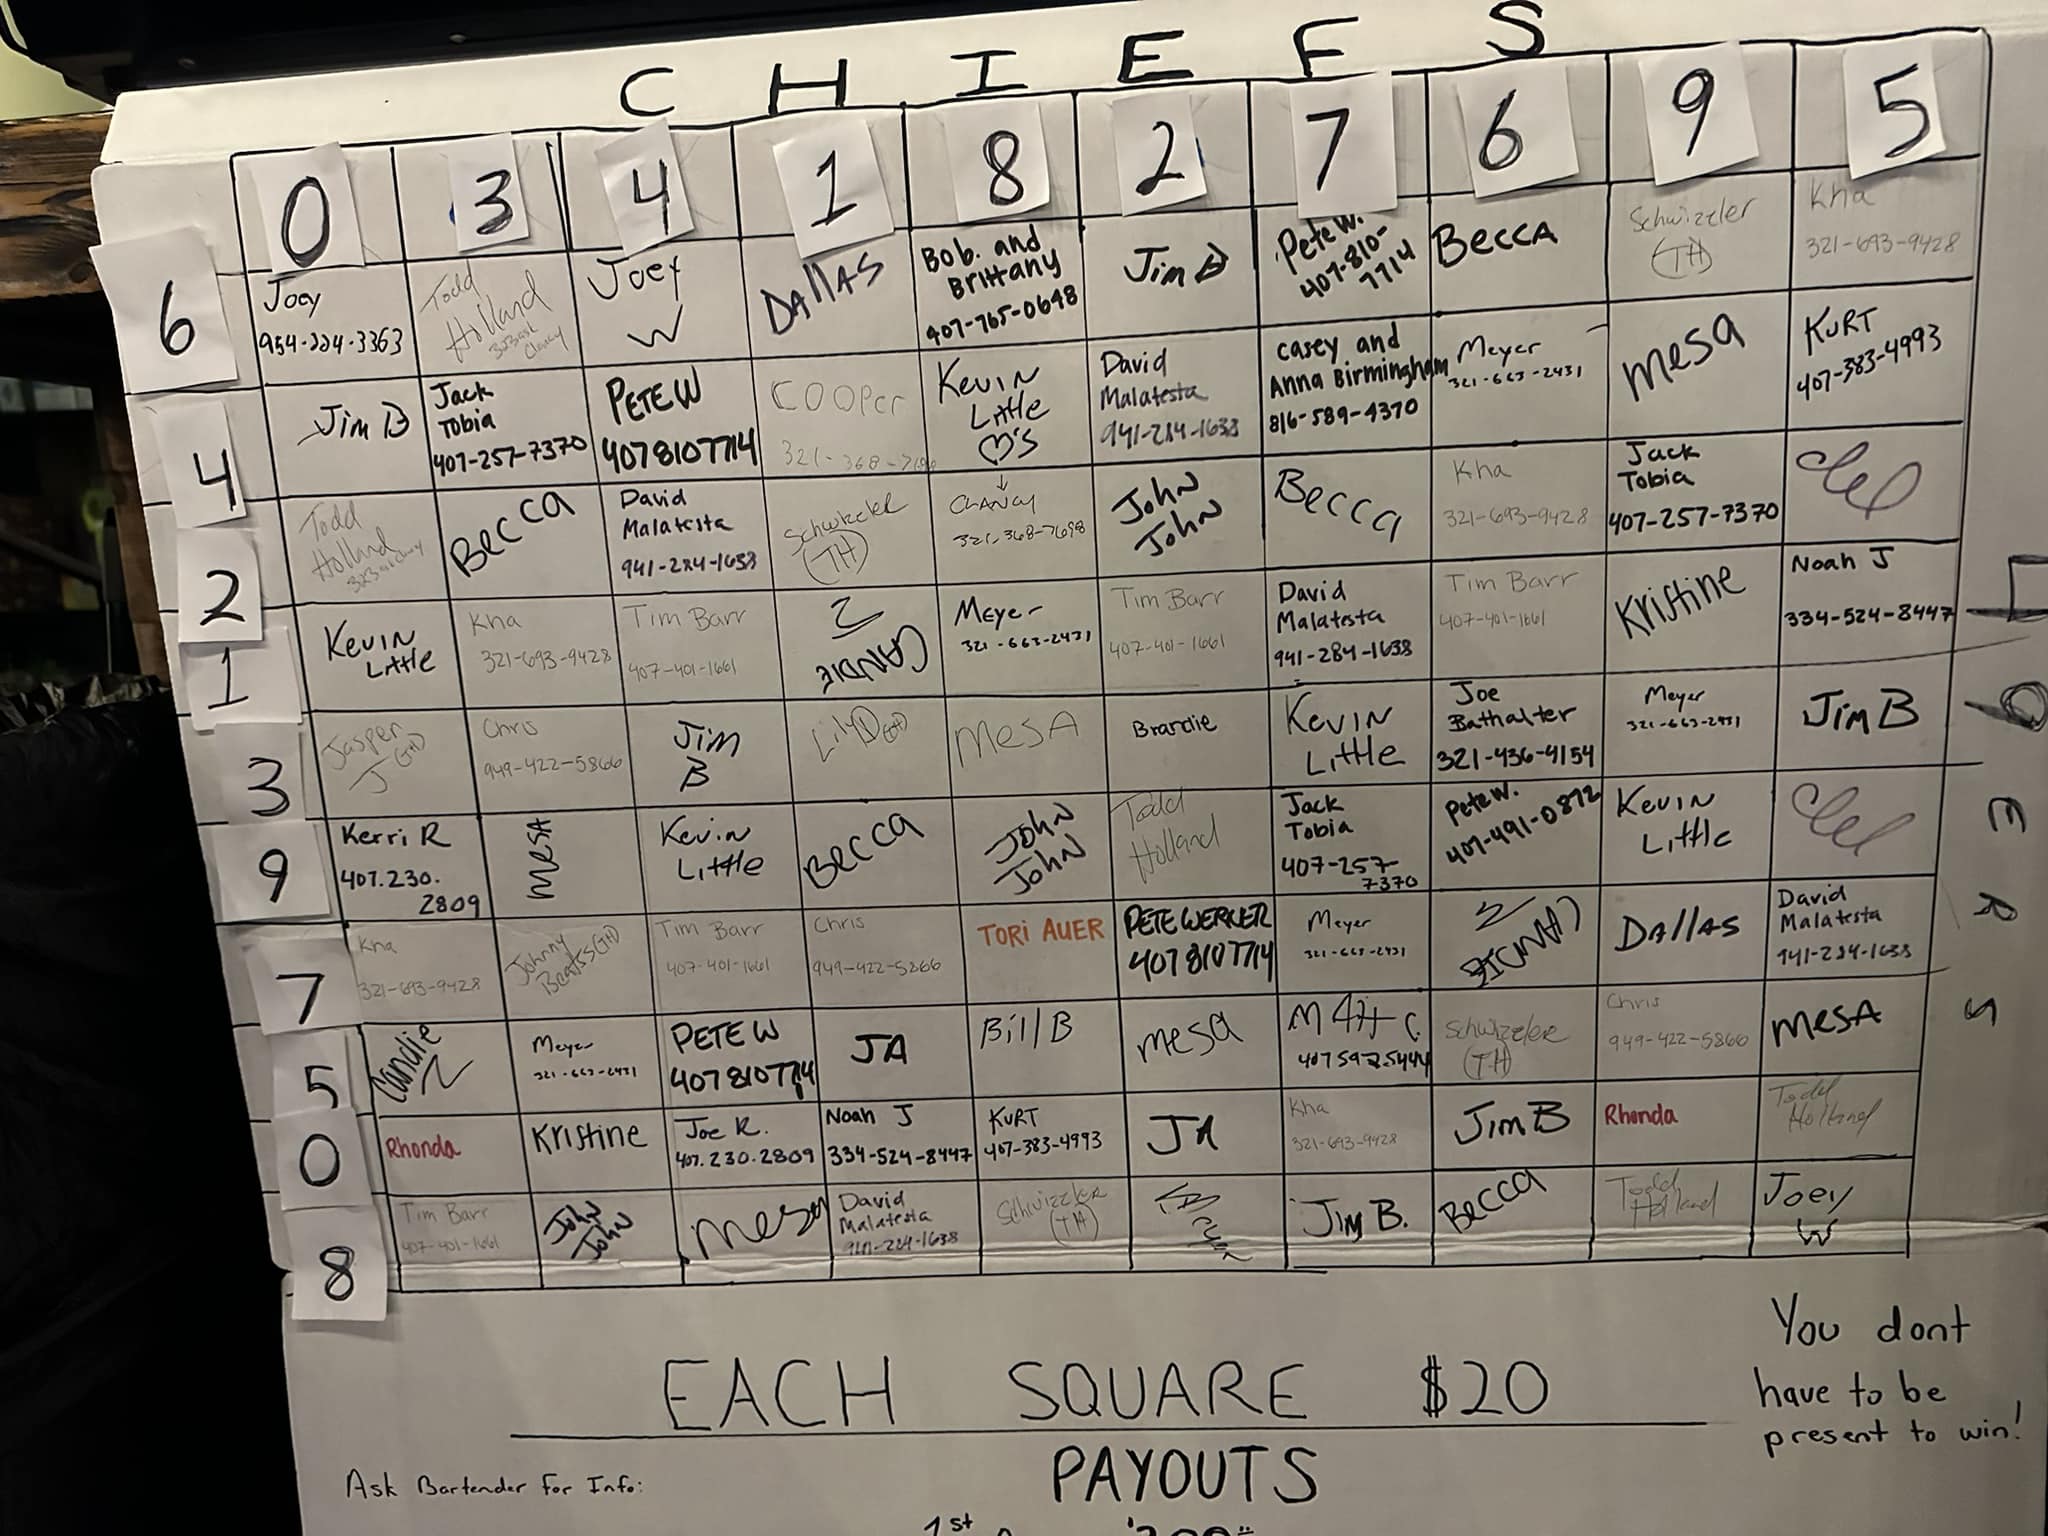 CHIEFS
0 3 4 1 8 2 7 6 9 5
6
Joey
954-224-3363
Todd
Holland
Joey
W
DALLAS
Bob. and
Brittany
407-765-0648
Jim B
Pete W.
407-810-
7714
BECCA
Schwizzler
(TH)
Kha
321-693-9428
4
Jim B
Jack
Tobia
407-257-7370
PETE W
4078107714
COOPer
KEVIN
Little
♡'s
David
Malatesta
941-284-1638
casey and
Anna Birmingham
816-589-4370
Meyer
321-663-2431
mesa
KURT
407-383-4993
2
Todd
Holland
Becca
David
Malatesta
941-284-1638
Schwizzler
(TH)
CLANCY
321-368-7698
John
John
Becca
Kha
321-693-9428
Jack
Tobia
407-257-7370
1
KEVIN
Little
Kha
321-693-9428
Tim Barr
407-401-1661
Z
CANDIE
Meyer
321-663-2431
Tim Barr
407-401-1661
David
Malatesta
941-284-1638
Tim Barr
407-401-1661
Kristine
Noah J
334-524-8447
3
Jasper
J (TH)
Chris
949-422-5866
Jim
B
Lily D (TH)
MESA
Brandie
KEVIN
Little
Joe
Bathalter
321-436-4154
Meyer
321-663-2431
Jim B
9
Kerri R
407.230.
2809
mesa
Kevin
Little
Becca
John
John
Todd
Holland
Jack
Tobia
407-257-
7370
Pete W.
407-491-0872
KEVIN
Little
7
Kha
321-693-9428
Johnny
Beatss (TH)
Tim Barr
407-401-1661
Chris
949-422-5866
TORI AUER
PETE WERNER
4078107714
Meyer
321-663-2431
Z
DALLAS
David
Malatesta
941-284-1638
5
Candie
Z
Meyer
321-663-2431
PETE W
4078107714
JA
Bill B
mesa
Matt C.
Schwizzler
(TH)
Chris
949-422-5866
MESA
0
Rhonda
Kristine
Joe R.
407.230.2809
Noah J
334-524-8447
KURT
407-383-4993
JA
Kha
321-693-9428
Jim B
Rhonda
Todd
Holland
8
Tim Barr
407-401-1661
John
John
mesa
David
Malatesta
941-284-1638
Schwizzler
(TH)
Jim B.
Becca
Todd
Holland
Joey
W
EACH SQUARE $20
You dont
have to be
present to win!
PAYOUTS
Ask Bartender For Info:
1st